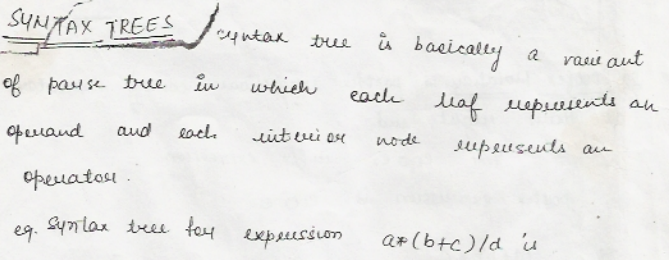 SYNTAX TREES
syntax tree is basically a variant
of parse tree in which each leaf represents an
operand and each interior node represents an
operator.
eg. Syntax tree for expression a*(b+c)/d is